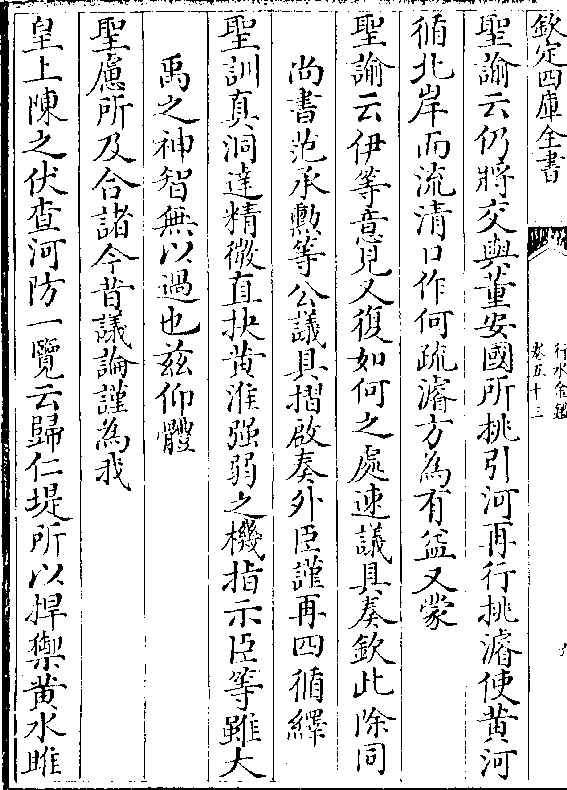 欽定四庫全書
行水金鑑
卷五十三
聖諭云仍將交與董安國所挑引河再行挑濬使黃河
循北岸而流清口作何疏濬方為有益又蒙
聖諭云伊等意見又復如何之處速議具奏欽此除同
尚書范承勲等公議具摺啟奏外臣謹再四循繹
聖訓真洞達精微直抉黃淮强弱之機指示臣等雖大
禹之神智無以過也兹仰體
聖慮所及合諸今昔議論謹為我
皇上陳之伏查河防一覽云歸仁堤所以捍禦黄水睢